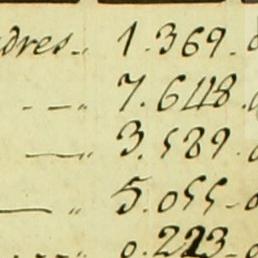 dres.. 1.369.
- - - „ 7.648.
— „ 3.589.
— „ 5.055-0
.... 0.223-